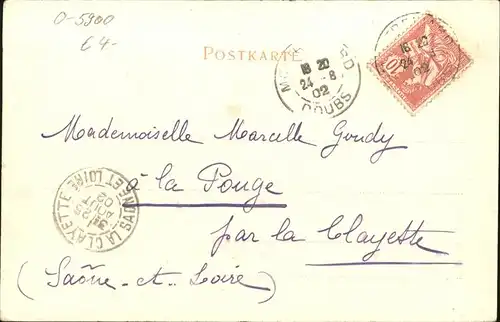 0-5900
€4-
POSTKARTE
18 20
24 - 8
02
DOUBS
18 20
24
02
10
Mademoiselle Marcelle Goudy
à la Pouge
par la Clayette
(Saône-et-Loire)
LA CLAYETTE
ET LOIRE
25
AOUT
02